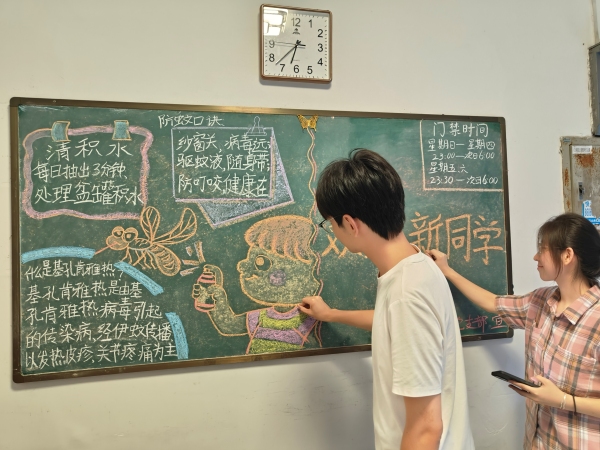 12
1
2
3
4
5
6
7
8
9
防蚊口诀
清积水
每日抽出3分钟,
处理盆罐积水
纱窗关,病毒远,
驱蚊液,随身带,
防叮咬,健康在
门禁时间
星期日—星期四
23:00—次日6:00
星期五、六
23:30—次日6:00
新同学
什么是基孔肯雅热?
基孔肯雅热是由基
孔肯雅热病毒引起
的传染病,经伊蚊传播
以发热皮疹,关节疼痛为主
部 宣